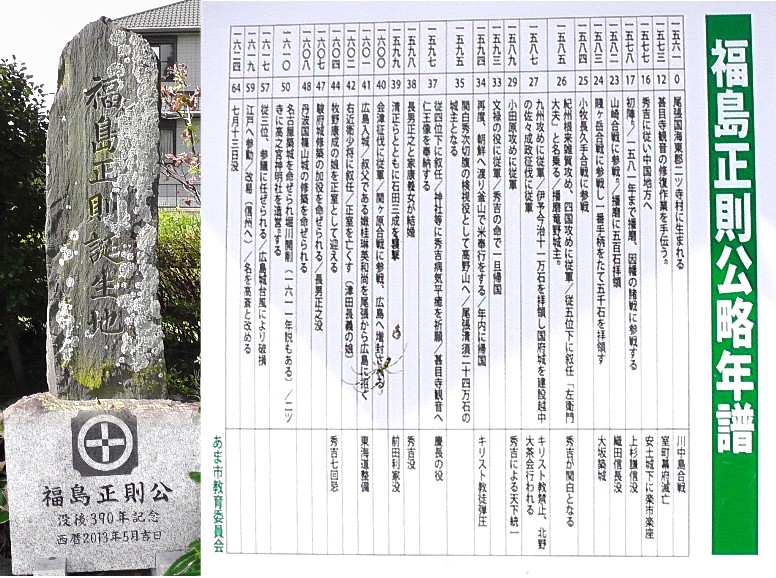 福島正則誕生地
福島正則公
没後390年記念
西暦2013年5月吉日
福島正則公略年譜
一五六一 0 尾張国海東郡二ツ寺村に生まれる 川中島合戦
一五七三 12 甚目寺観音の修復作業を手伝う。 室町幕府滅亡
一五七七 16 秀吉に従い中国地方へ 安土城下に楽市楽座
一五七八 17 初陣。/一五八一年まで播磨、因幡の諸戦に参戦する 上杉謙信没
一五八二 23 山崎合戦に参戦。/播磨に五百石拝領 織田信長没
一五八三 24 賤ヶ岳合戦に参戦し一番手柄をたて五千石を拝領す 大坂築城
一五八四 25 小牧長久手合戦に参戦
一五八五 26 紀州根来雑賀攻め、四国攻めに従軍/従五位下に叙任「左衛門
大夫」と名乗る/播磨竜野城主。 秀吉が関白となる
一五八七 27 九州攻めに従軍/伊予今治十一万石を拝領し国府城を建設越中
の佐々成政征伐に従軍 キリスト教禁止、北野
大茶会行われる
一五八九 29 小田原攻めに従軍 秀吉による天下統一
一五九三 33 文禄の役に従軍/秀吉の命で一旦帰国
一五九四 34 再度、朝鮮へ渡り釜山で米奉行をする/年内に帰国 キリスト教徒弾圧
一五九五 35 関白秀次切腹の検視役として高野山へ/尾張清須二十四万石の
城主となる
一五九七 37 従四位下に叙任/神社等に秀吉病気平癒を祈願/甚目寺観音へ
仁王像を奉納する 慶長の役
一五九八 38 長男正之と家康義女が結婚 秀吉没
一五九九 39 清正らとともに石田三成を襲撃 前田利家没
一六〇〇 40 会津征伐に従軍/関ヶ原合戦に参戦、広島へ増封される
一六〇一 41 広島入城/叔父である娥桂琳英和尚を尾張から広島に招く 東海道整備
一六〇二 42 右近衛少将に叙任/正室を亡くす(津田長義の娘)
一六〇四 44 牧野康成の娘を正室として迎える 秀吉七回忌
一六〇七 47 駿府城修築の加役を命ぜられる/長男正之没
一六〇八 48 丹波国篠山城の修築を命ぜられる
一六一〇 50 名古屋築城を命ぜられ堀川開削(一六一一年説もある)/二ツ
寺に高之宮神明社を造営する。
一六一七 57 従三位、参議に任ぜられる/広島城台風により破損
一六一九 59 江戸へ参勤/改易(信州へ)/名を高斎と改める
一六二四 64 七月十三日没
あま市教育委員会